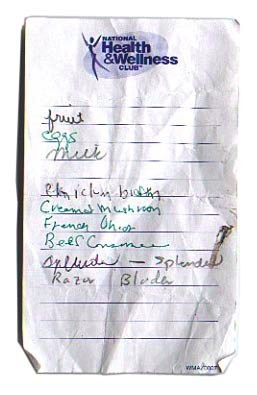 NATIONAL
Health
&Wellness
CLUB™
fruit
eggs
milk
Chicken broth
Creamed Mushroom
French Onion
Beef Consomee
Splenda — Splenda
Razor Blades